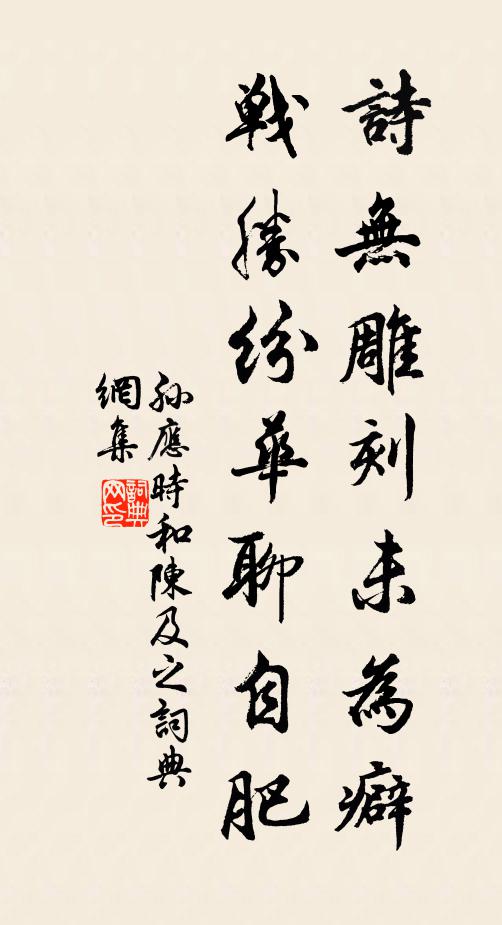 詩無雕刻未為癖
戰勝紛華聊自肥
孫應時和陳及之詞典
網集
詞典網印